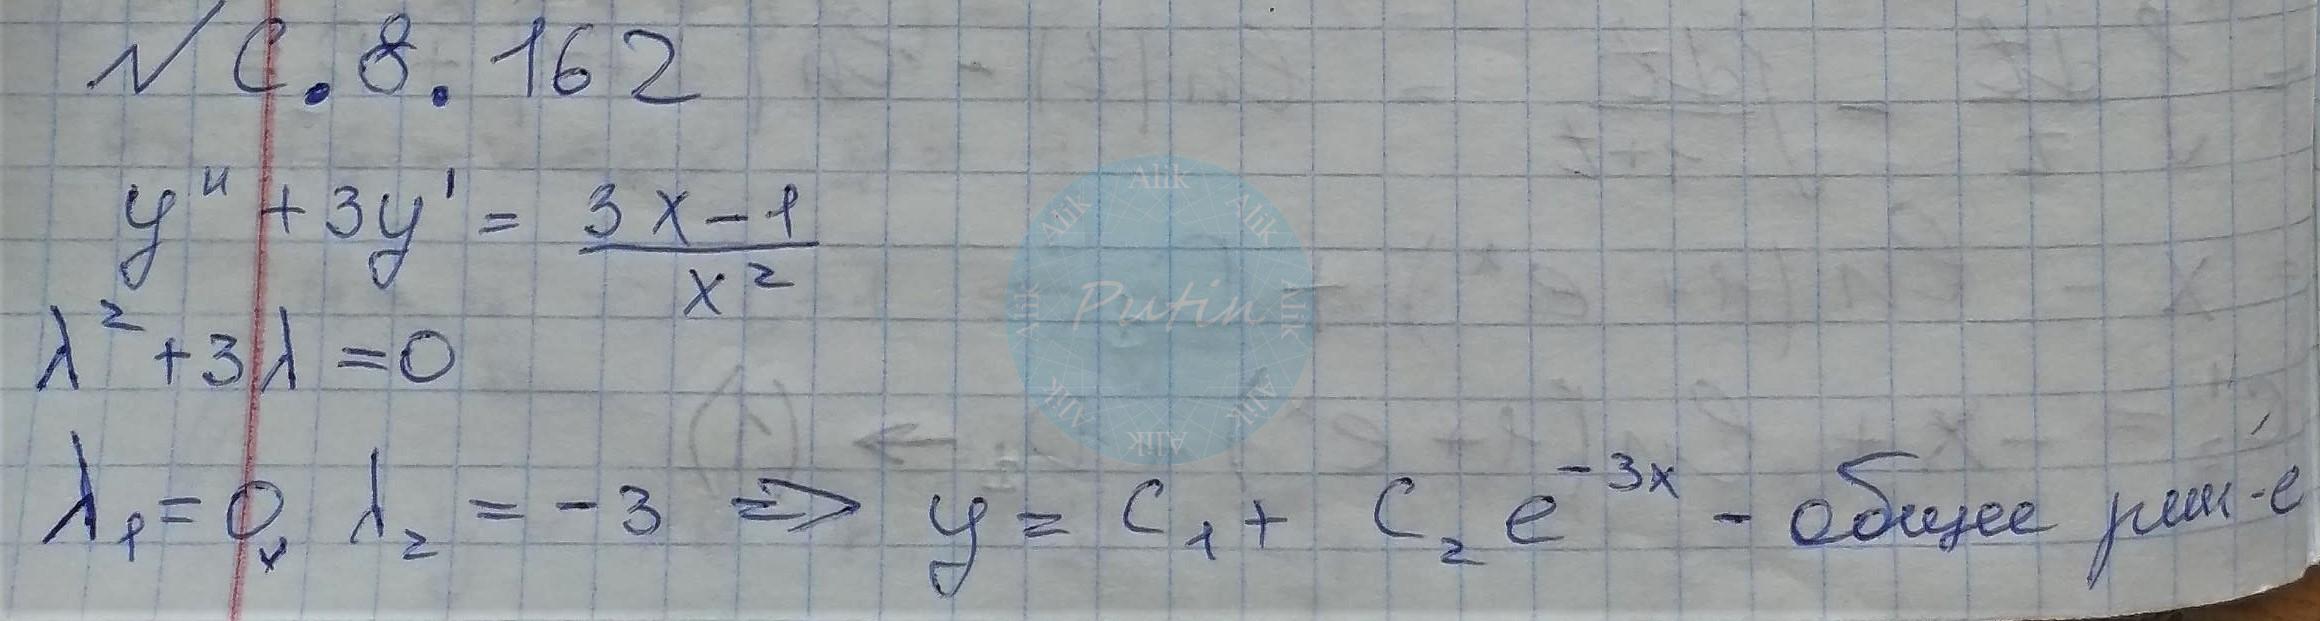 № С.8.162
y" + 3y' = (3x - 1)/x²
λ² + 3λ = 0
λ₁ = 0, λ₂ = -3 ⇒ y = C₁ + C₂e^(-3x) - общее реш-е
Alik
Alik
Alik
Alik
Putin
Alik
Alik
Alik
Alik